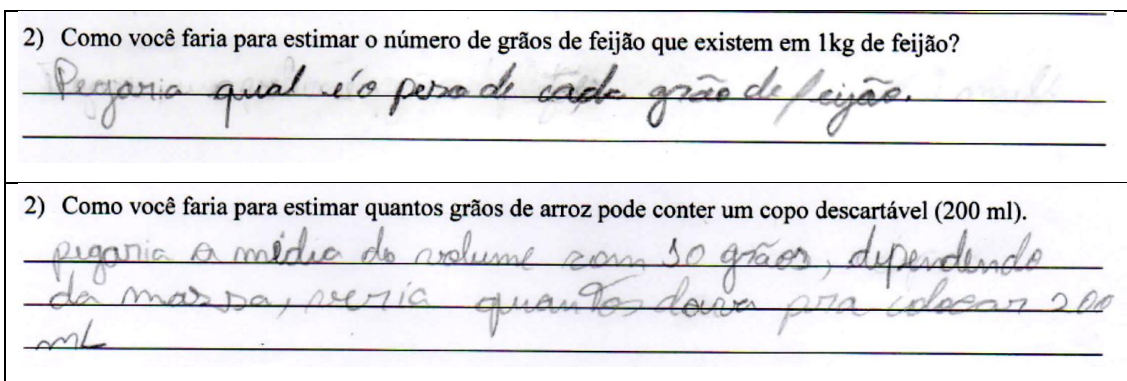 2) Como você faria para estimar o número de grãos de feijão que existem em 1kg de feijão?
Pegaria qual é o peso de cada grão de feijão.
2) Como você faria para estimar quantos grãos de arroz pode conter um copo descartável (200 ml).
pegaria a média do volume com 10 grãos, dependendo
da massa, veria quantos dava pra colocar 200
mL